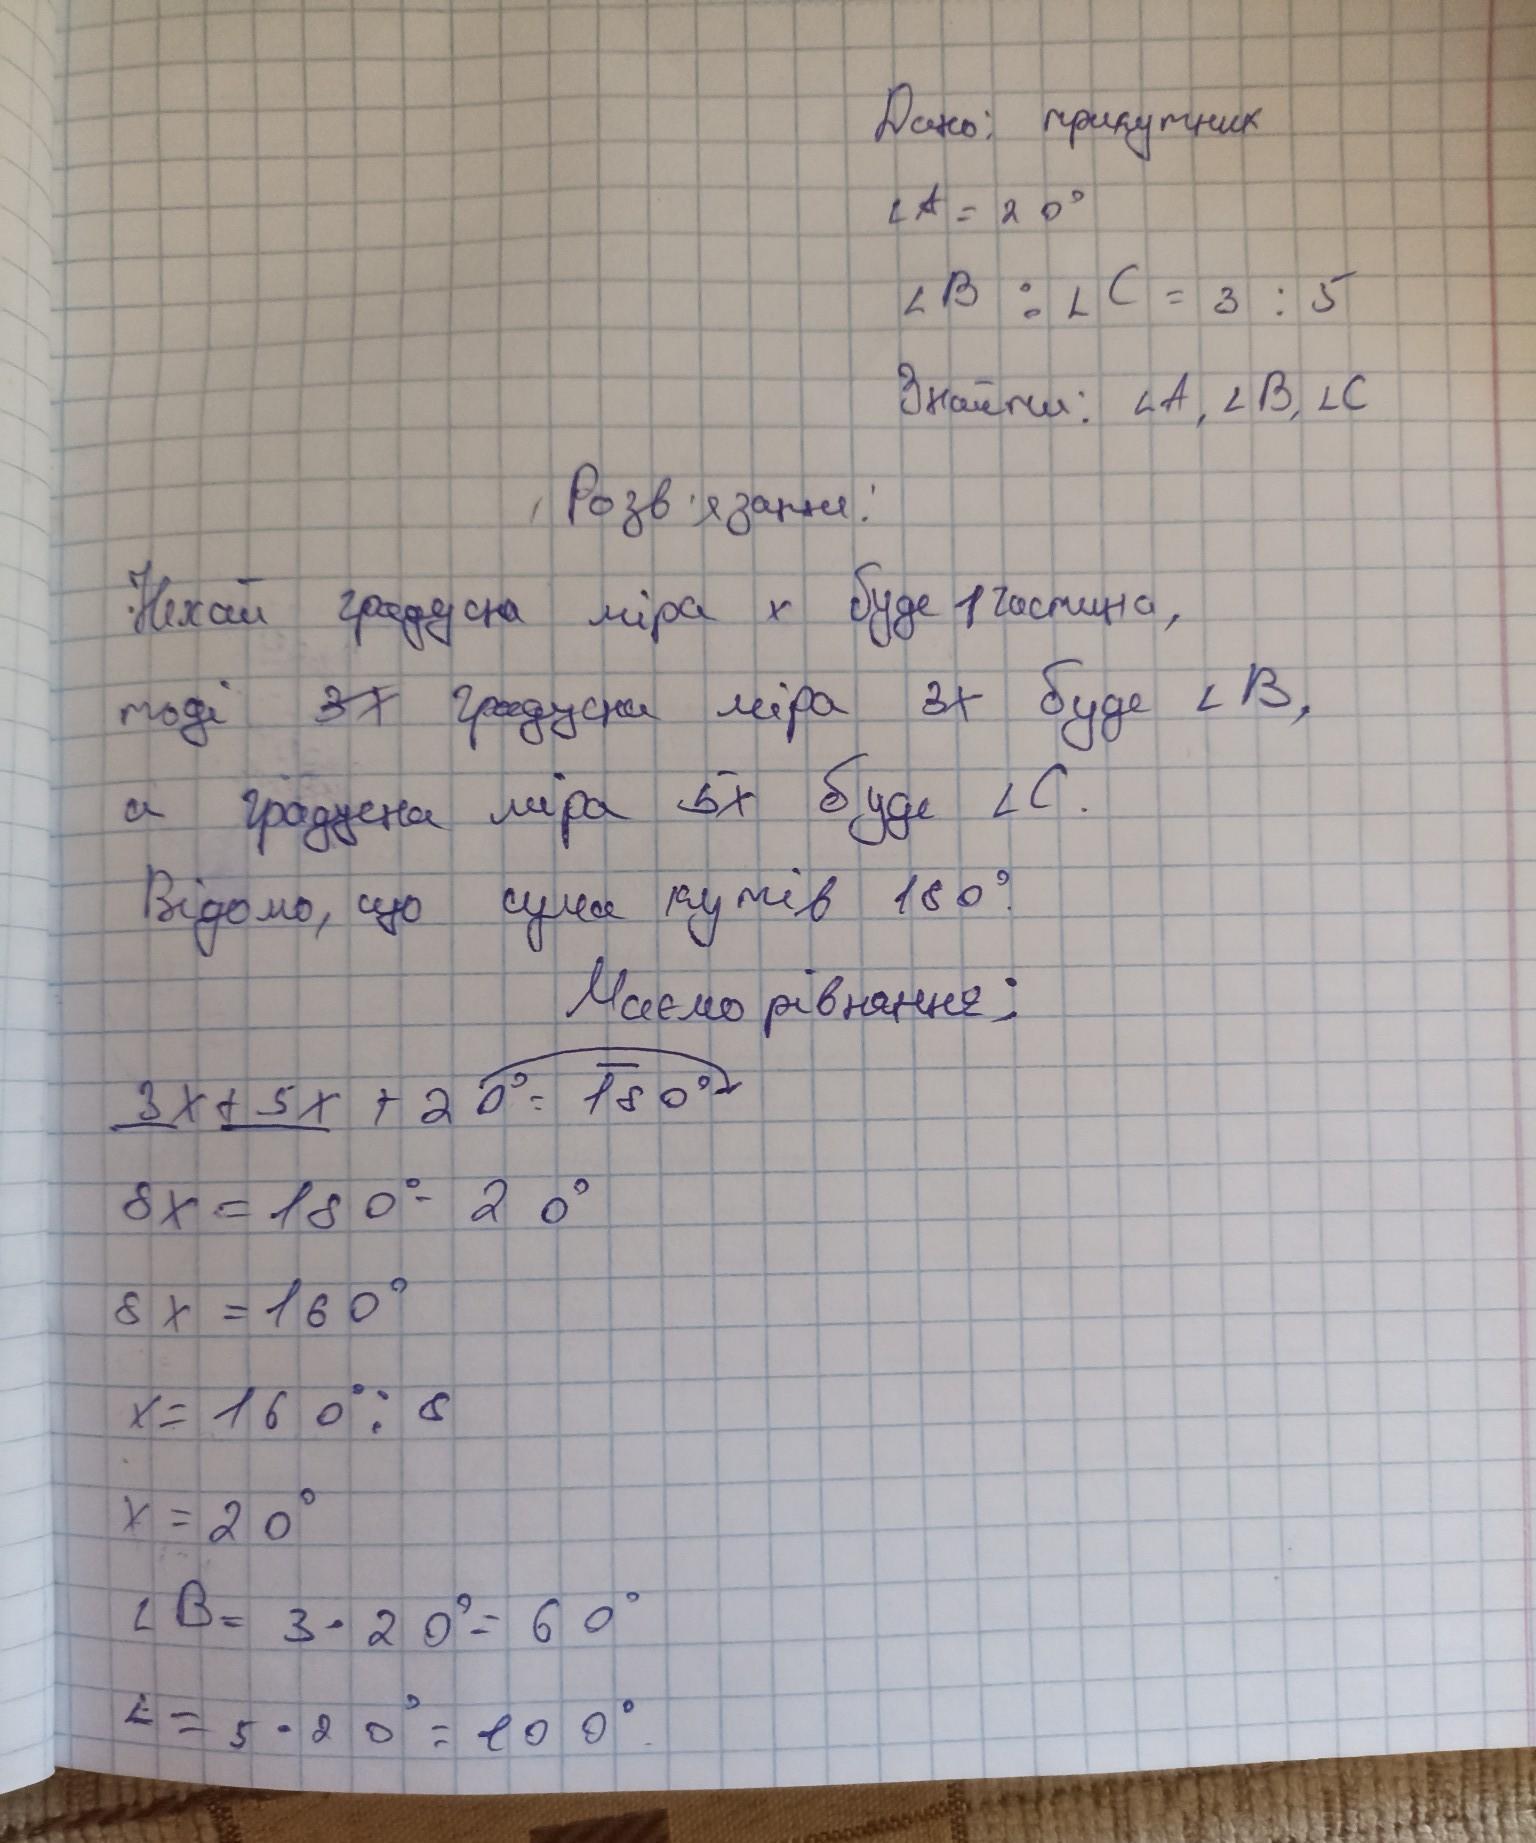 Дано: трикутник
∠A = 20°
∠B : ∠C = 3 : 5
Знайти: ∠A, ∠B, ∠C
Розв'язання:
Нехай градусна міра x буде 1 частина,
тоді 3x градусна міра 3x буде ∠B,
а градусна міра 5x буде ∠C.
Відомо, що сума кутів 180°.
Маємо рівняння:
3x + 5x + 20° = 180°
8x = 180° - 20°
8x = 160°
x = 160° : 8
x = 20°
∠B = 3 · 20° = 60°
∠ = 5 · 20° = 100°.